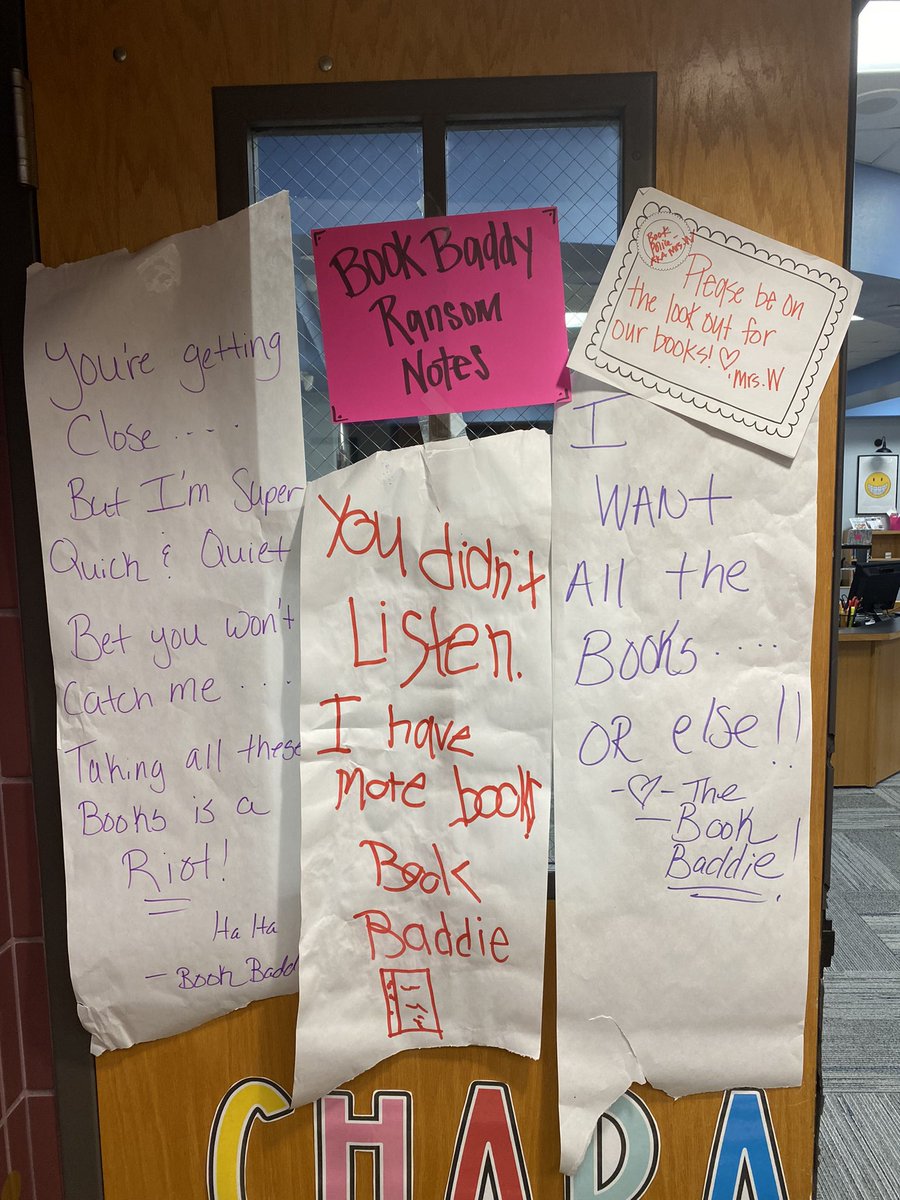 Book Baddy
Ransom
Notes
Book
Police
AKA Mrs. W
Please be on
the look out for
our books! ♡
. Mrs. W
You're getting
Close ....
But I'm Super
Quick & Quiet
Bet you won't
Catch me ....
Taking all these
Books is a
Riot!
Ha Ha
- Book Badd
You didn't
Listen.
I have
More books
Book
Baddie
I
WANt
All the
Books ....
OR else!!
-♡- The
Book
Baddie!
CHADA